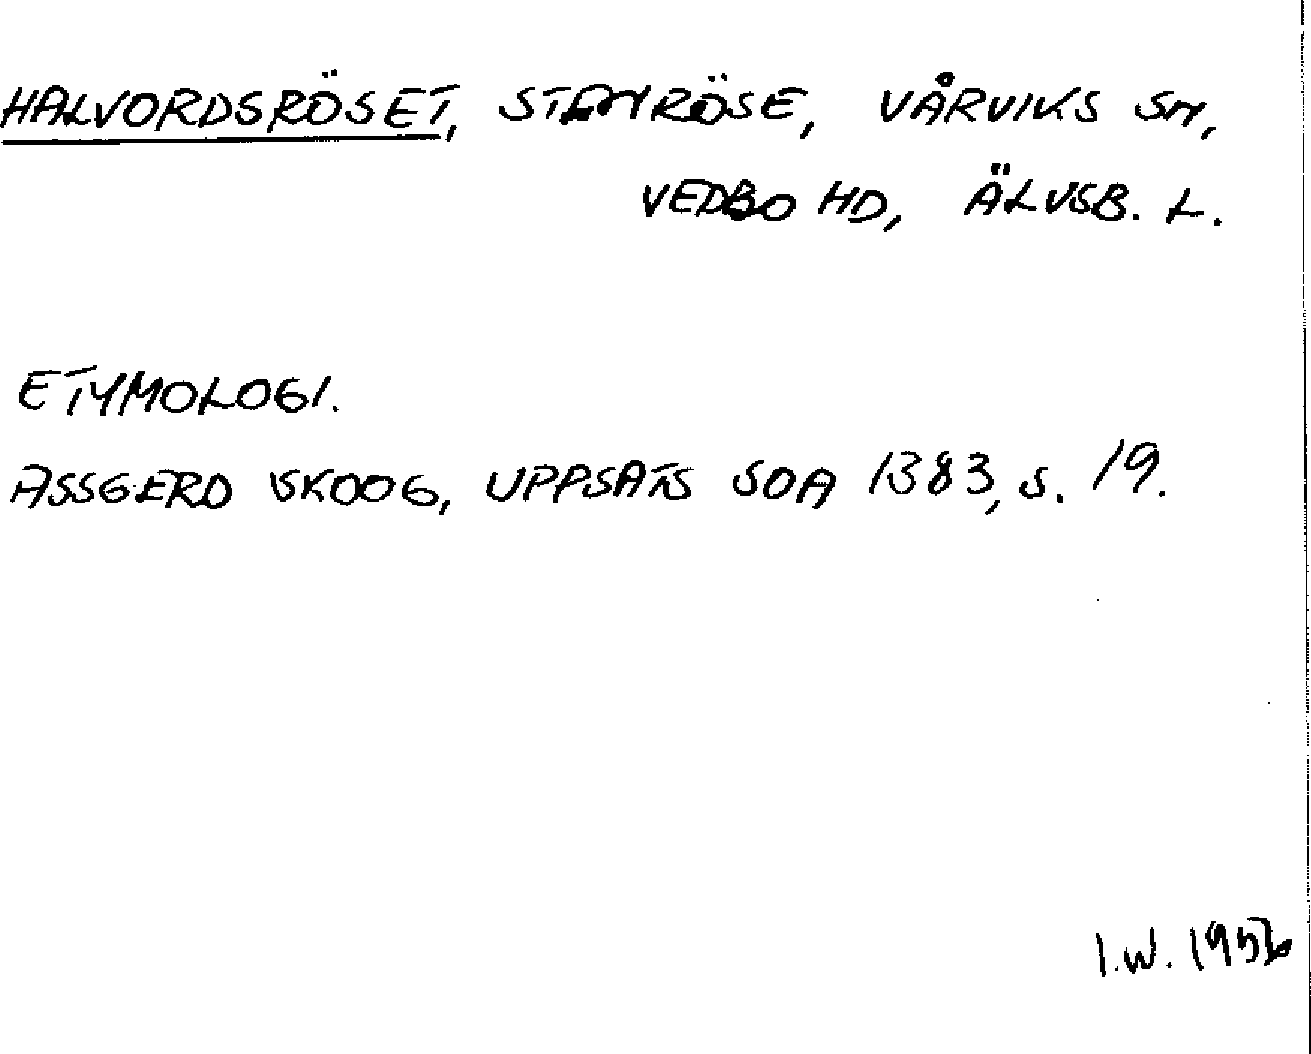 HALVORDSRÖSET, STENRÖSE, VÅRVIKS SN,
VEDBO HD, ÄLVSB. L.
ETYMOLOGI.
ASSGERD SKOOG, UPPSATS SOA 1383, S. 19.
I.W.